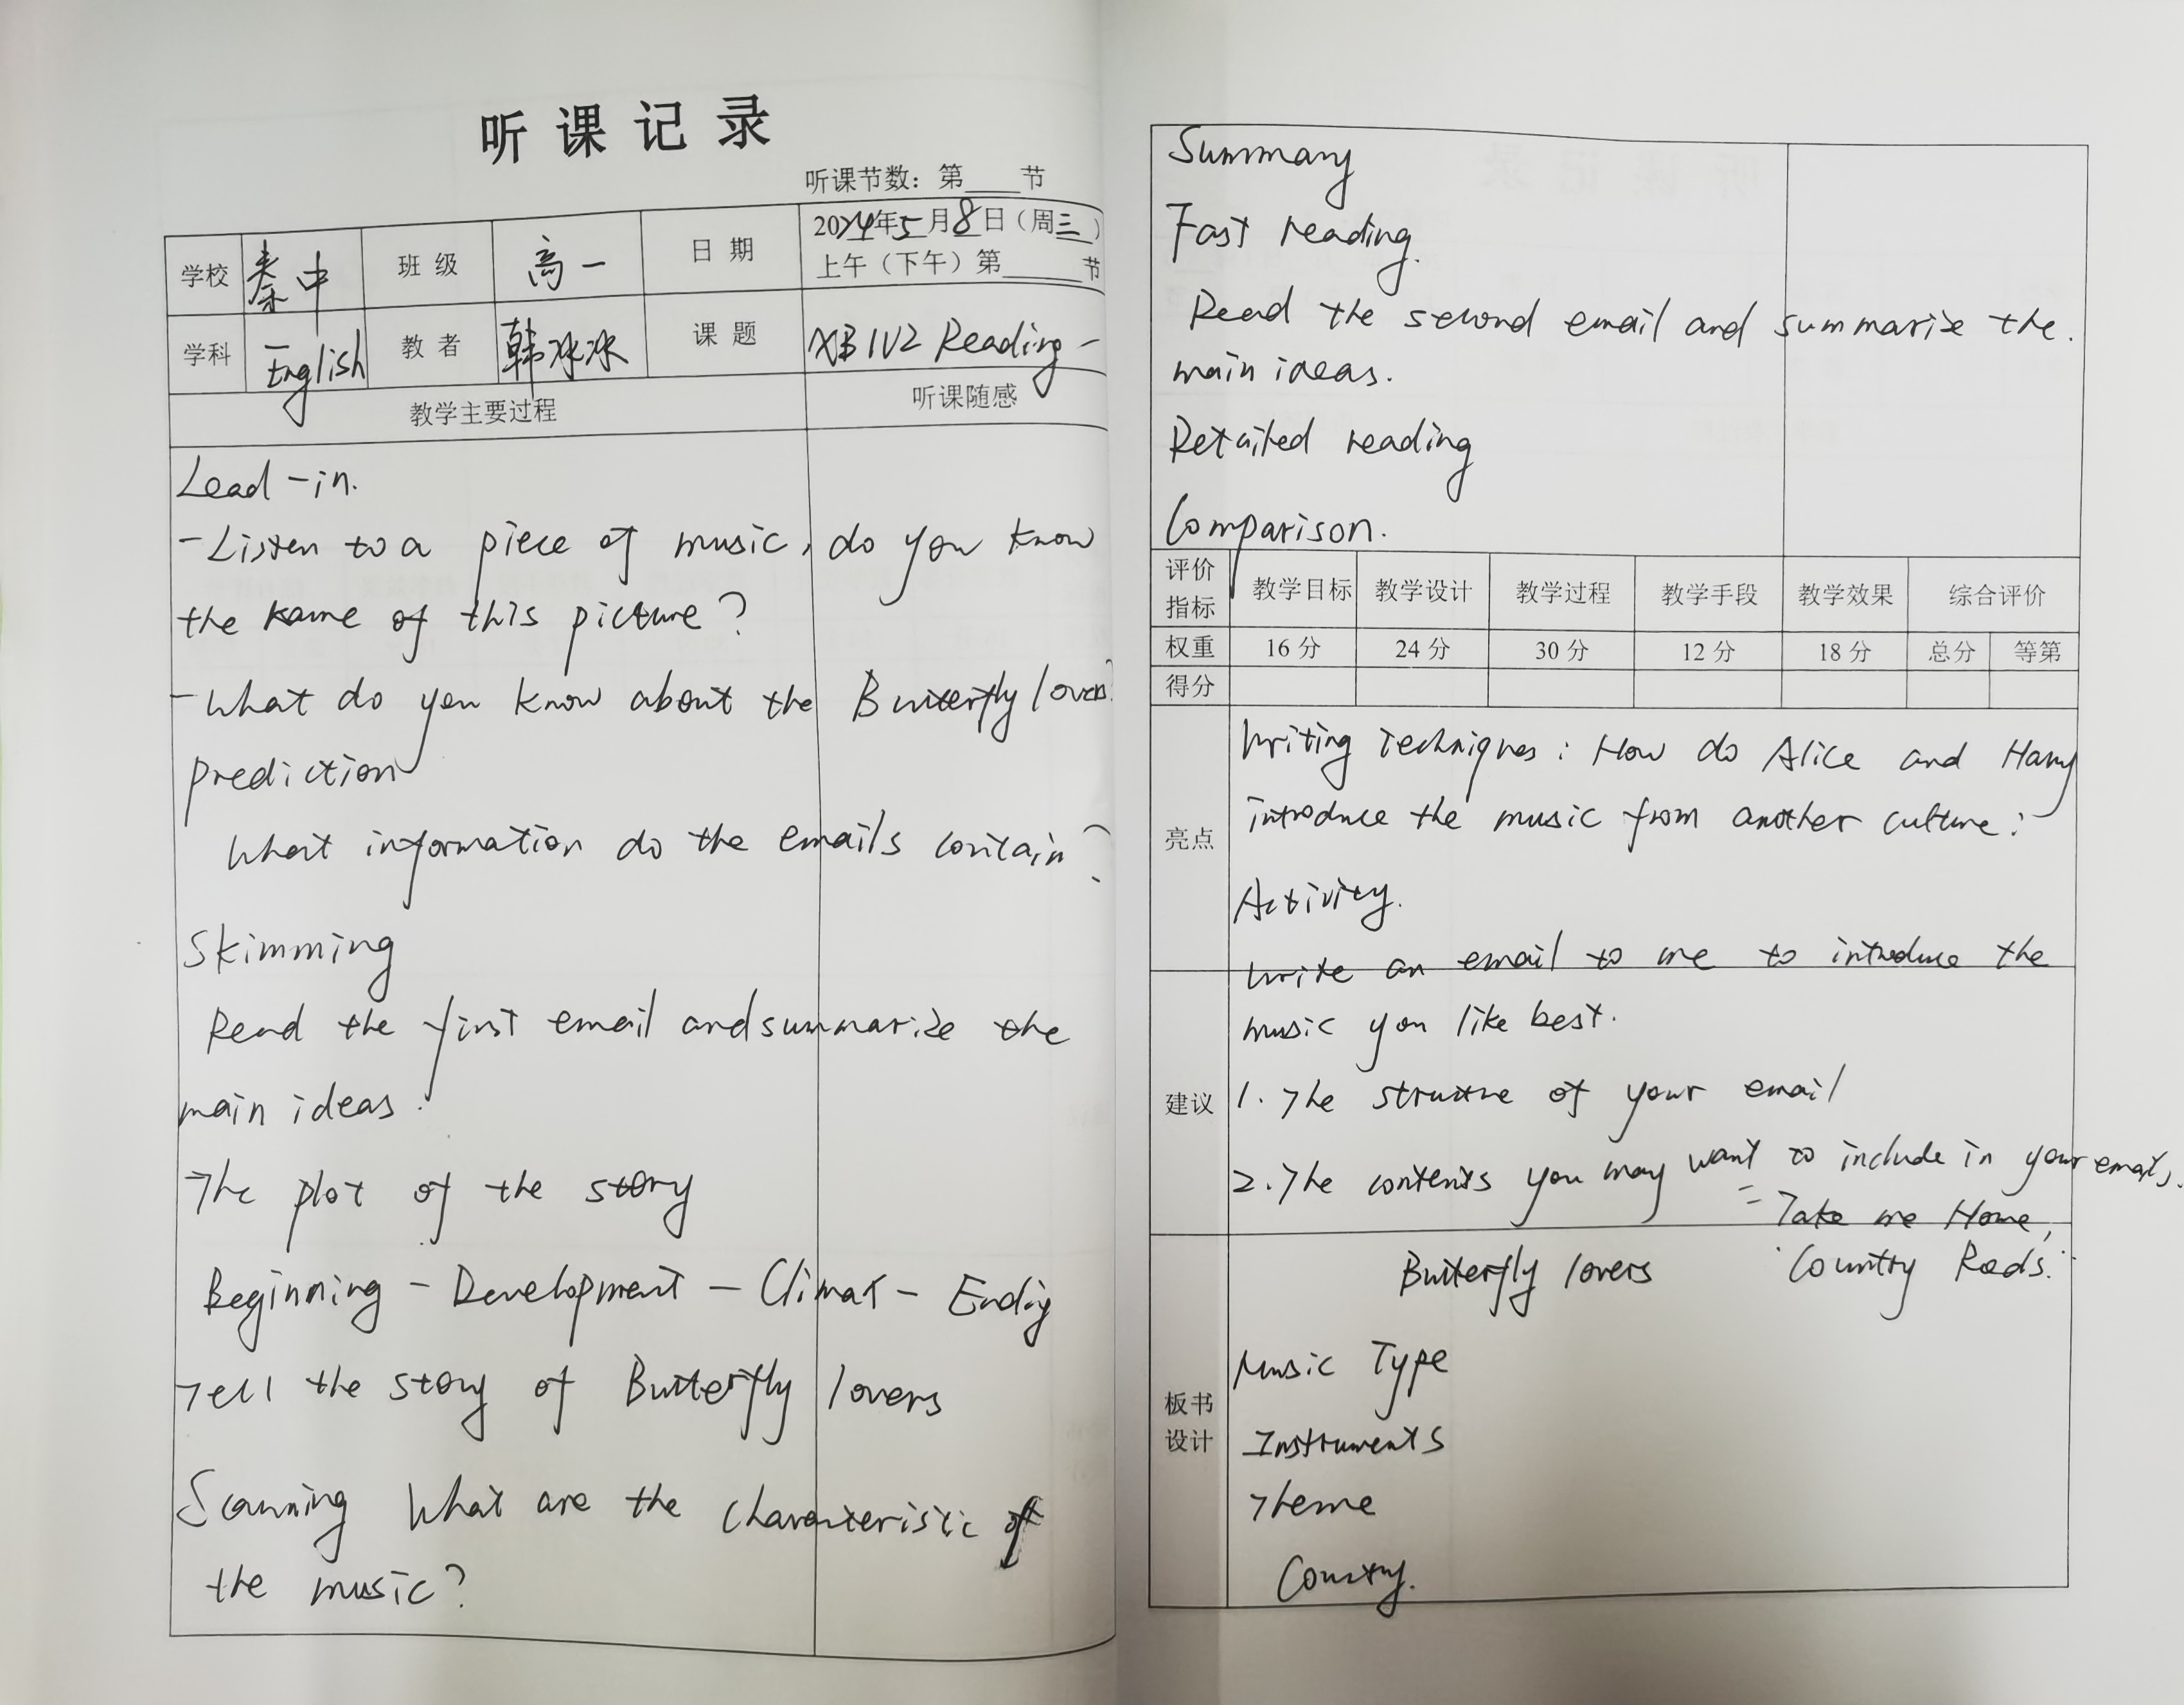 听课记录
听课节数：第____节
学校 秦中 班级 高一 日期 2024年5月8日（周三）
上午（下午）第______节
学科 English 教者 韩冰冰 课题 XB1U2 Reading-
教学主要过程 听课随感
Lead-in.
-Listen to a piece of music, do you know
the name of this picture?
-What do you know about the Butterfly lovers?
prediction
What information do the emails contain?
Skimming
Read the first email and summarize the
main ideas.
The plot of the story
Beginning - Development - Climax - Ending
Tell the story of Butterfly lovers
Scanning What are the characteristic of
the music?
Summary
Fast reading.
Read the second email and summarize the.
main ideas.
Detailed reading
Comparison.
评价指标 教学目标 教学设计 教学过程 教学手段 教学效果 综合评价
权重 16分 24分 30分 12分 18分 总分 等第
得分
亮点
Writing Techniques: How do Alice and Harry
introduce the music from another culture:
Activity.
write an email to me to introduce the
music you like best.
建议
1. The structure of your email
2. The contents you may want to include in your email,
Take me Home,
Butterfly lovers Country Roads.
板书设计
Music Type
Instruments
Theme
Country.